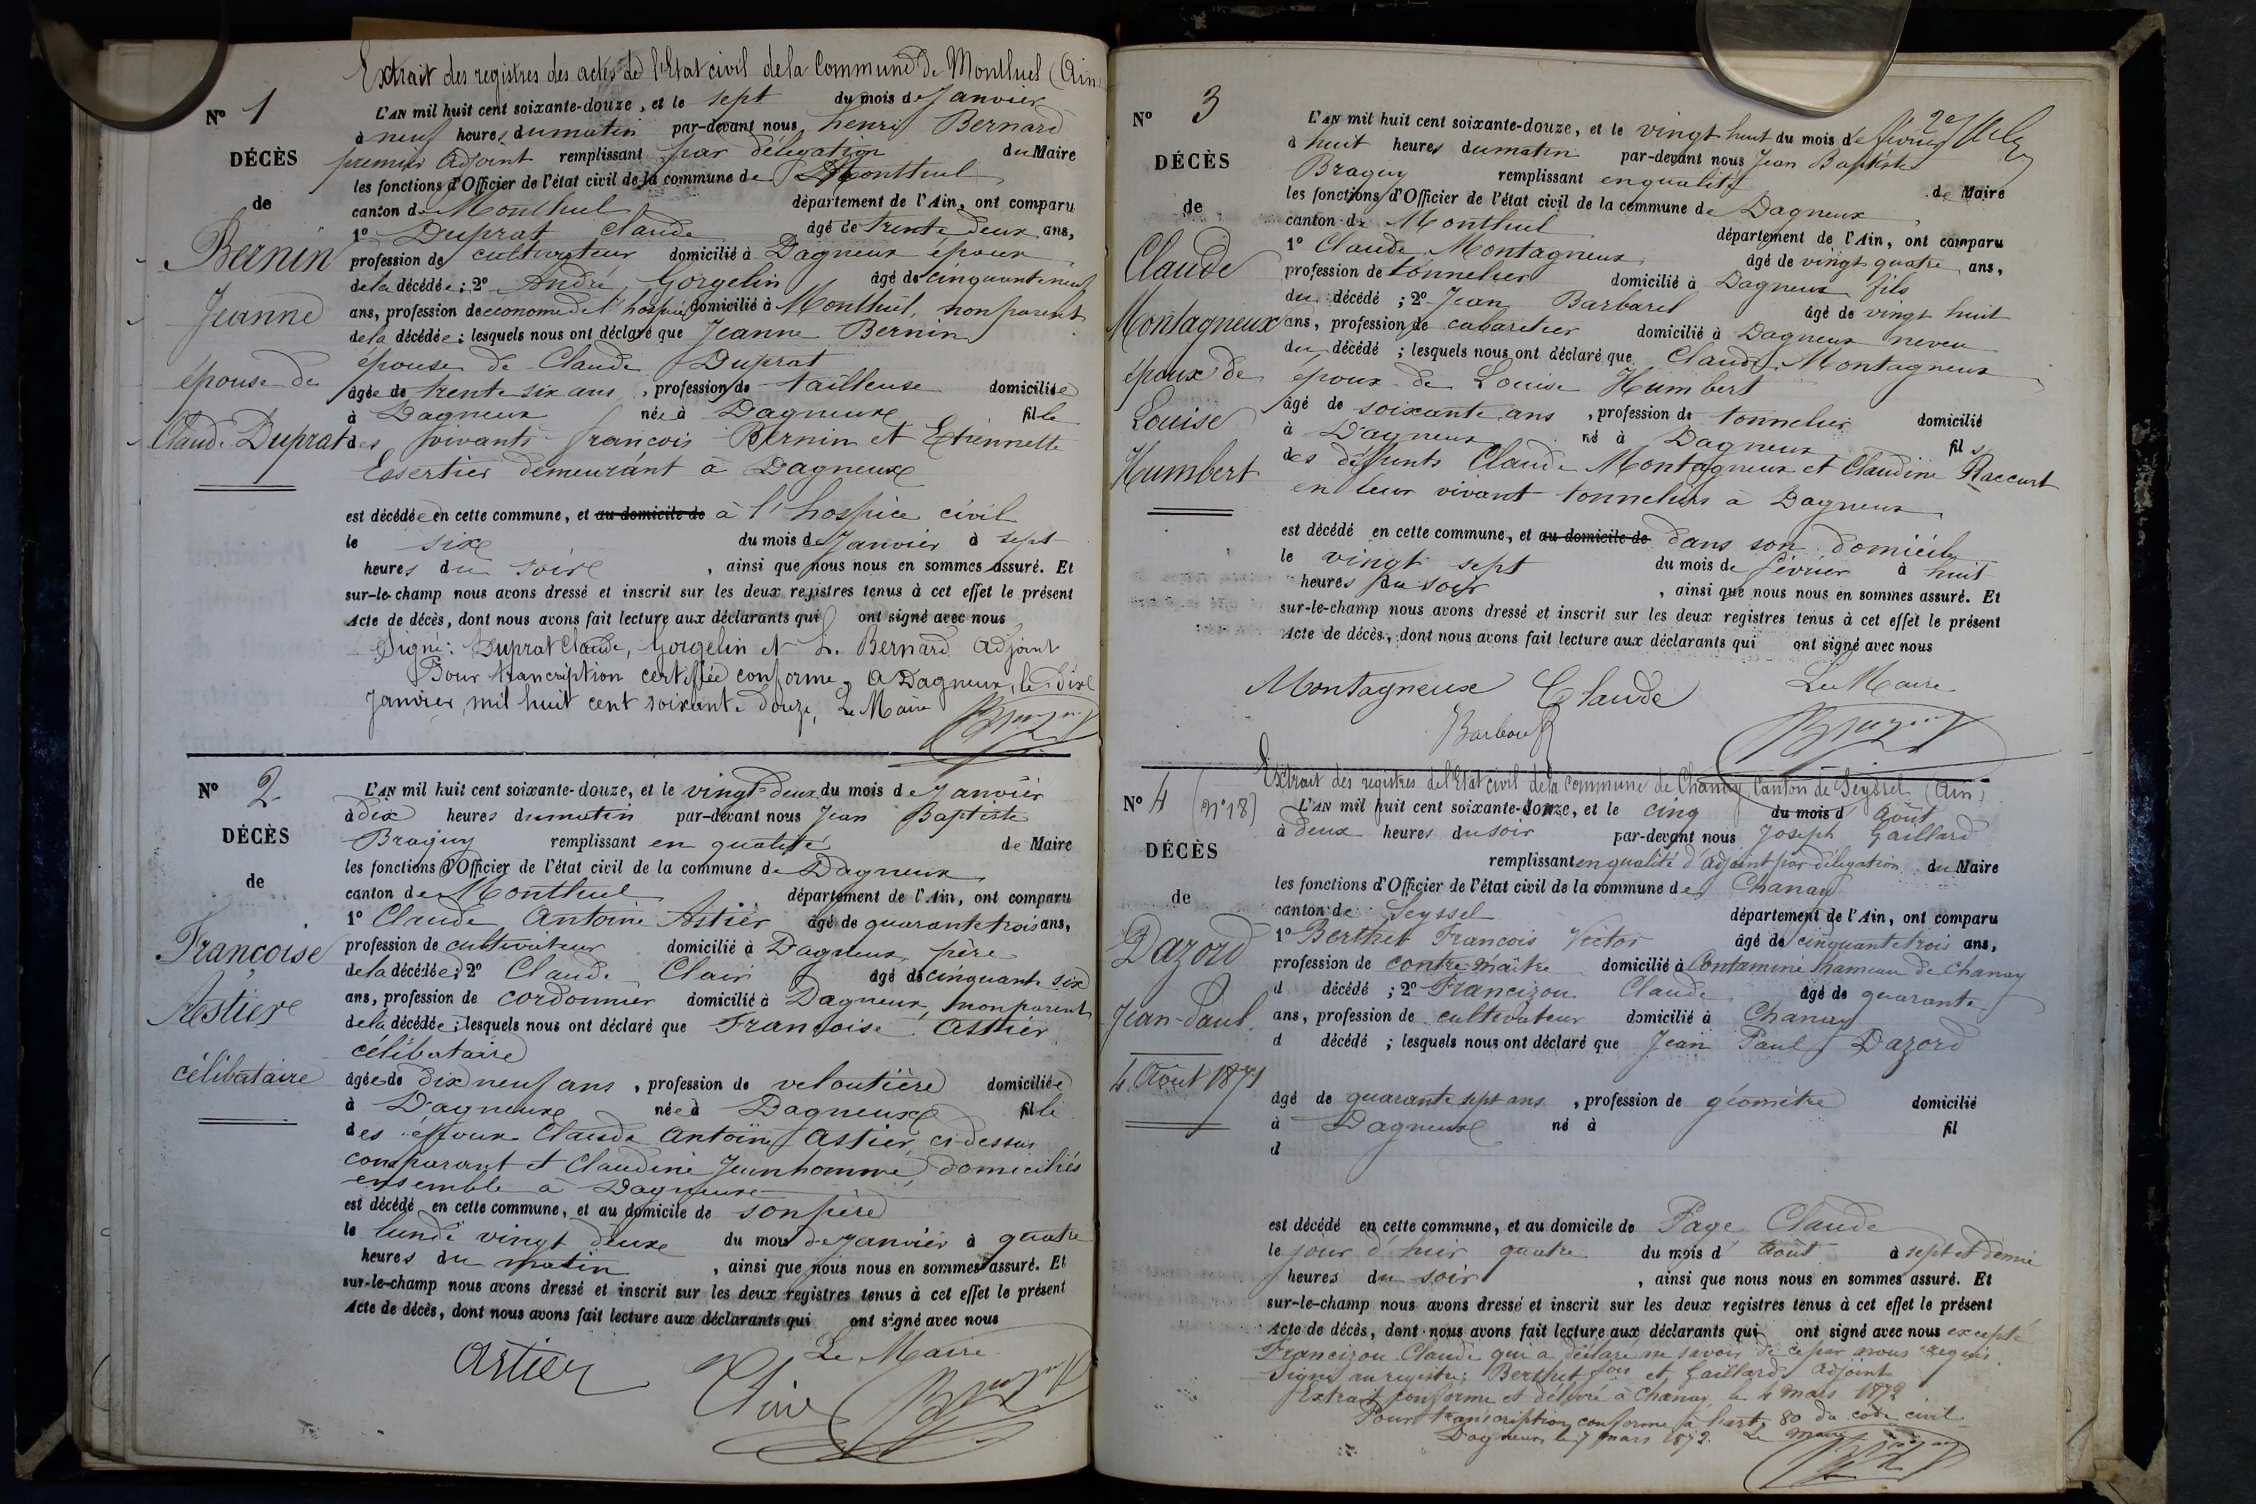 Extrait des registres des actes de l'Etat civil de la Commune de Montluel (Ain)
N° 1
DÉCÈS
de
Bernin
Jeanne
épouse de
Claude Duprat
L'AN mil huit cent soixante-douze, et le sept du mois de Janvier
à neuf heures du matin par-devant nous henri Bernard
premier adjoint remplissant par délégation du Maire
les fonctions d'Officier de l'état civil de la commune de Montluel
canton de Montluel département de l'Ain, ont comparu
1° Duprat Claude âgé de trente deux ans,
profession de cultivateur domicilié à Dagneux époux
de la décédée ; 2° André Gorgelin âgé de cinquante neuf
ans, profession de econome de l'hospice domicilié à Montluel, non parent
de la décédée ; lesquels nous ont déclaré que Jeanne Bernin
épouse de Claude Duprat
âgée de trente six ans, profession de tailleuse domiciliée
à Dagneux née à Dagneux fille
des vivants françois Bernin et Etiennette
Essertier demeurant à Dagneux
est décédée en cette commune, et au domicile de à l'hospice civil
le six du mois de Janvier à sept
heures du soir, ainsi que nous nous en sommes assuré. Et
sur-le-champ nous avons dressé et inscrit sur les deux registres tenus à cet effet le présent
Acte de décès, dont nous avons fait lecture aux déclarants qui ont signé avec nous
Signé : Duprat Claude, Gorgelin et h. Bernard adjoint
Pour trancription certiffiée conforme, a Dagneux, le dix
Janvier, mil huit cent soixante douze, Le Maire
N° 2
DÉCÈS
de
Françoise
Astier
célibataire
L'AN mil huit cent soixante-douze, et le vingt deux du mois de Janvier
à dix heures du matin par-devant nous Jean Baptiste
Braguy remplissant en qualité de Maire
les fonctions d'Officier de l'état civil de la commune de Dagneux
canton de Montluel département de l'Ain, ont comparu
1° Claude Antoine Astier âgé de quarante trois ans,
profession de cultivateur domicilié à Dagneux, père
de la décédée ; 2° Claude Clair âgé de cinquante six
ans, profession de cordonnier domicilié à Dagneux, non parent
de la décédée ; lesquels nous ont déclaré que Françoise Astier
célibataire
âgée de dix neuf ans, profession de veloutière domiciliée
à Dagneux née à Dagneux fille
des époux Claude Antoine Astier, ci-dessus
comparant et Claudine Jeunhomme, domiciliés
ensemble à Dagneux
est décédé en cette commune, et au domicile de son père
le lundi vingt deux du mois de Janvier à quatre
heures du matin, ainsi que nous nous en sommes assuré. Et
sur-le-champ nous avons dressé et inscrit sur les deux registres tenus à cet effet le présent
Acte de décès, dont nous avons fait lecture aux déclarants qui ont signé avec nous
Le Maire
Astier
N° 3
DÉCÈS
de
Claude
Montagneux
époux de
Louise
Humbert
L'AN mil huit cent soixante-douze, et le vingt huit du mois de février
à huit heures du matin par-devant nous Jean Baptiste
Braguy remplissant en qualité de Maire
les fonctions d'Officier de l'état civil de la commune de Dagneux
canton de Montluel département de l'Ain, ont comparu
1° Claude Montagneux âgé de vingt quatre ans,
profession de tonnelier domicilié à Dagneux fils
du décédé ; 2° Jean Barbaret âgé de vingt huit
ans, profession de cabaretier domicilié à Dagneux neveu
du décédé ; lesquels nous ont déclaré que Claude Montagneux
époux de Louise Humbert
âgé de soixante ans, profession de tonnelier domicilié
à Dagneux né à Dagneux fils
des défunts Claude Montagneux et Claudine Raccurt
en leur vivant tonneliers à Dagneux
est décédé en cette commune, et au domicile de dans son domicile
le vingt sept du mois de février à huit
heures du soir, ainsi que nous nous en sommes assuré. Et
sur-le-champ nous avons dressé et inscrit sur les deux registres tenus à cet effet le présent
Acte de décès, dont nous avons fait lecture aux déclarants qui ont signé avec nous
Le Maire
Montagneux Claude
Extrait des registres de l'Etat civil de la commune de Chanay Canton de Seyssel (Ain)
N° 4 (N° 18)
DÉCÈS
de
Dazord
Jean-Paul
4 Août 1871
L'AN mil huit cent soixante-douze, et le cinq du mois d Août
à deux heures du soir par-devant nous Joseph Gaillard
remplissant en qualité d'adjoint par délégation du Maire
les fonctions d'Officier de l'état civil de la commune de Chanay
canton de Seyssel département de l'Ain, ont comparu
1° Berthet François Victor âgé de cinquante trois ans,
profession de contre-maître domicilié à Contamine hameau de Chanay
d décédé ; 2° Francizou Claude âgé de quarante
ans, profession de cultivateur domicilié à Chanay
d décédé ; lesquels nous ont déclaré que Jean Paul Dazord
âgé de quarante sept ans, profession de géomètre domicilié
à Dagneux né à fil
d
est décédé en cette commune, et au domicile de Page Claude
le jour d'hier quatre du mois d Août à sept et demie
heures du soir, ainsi que nous nous en sommes assuré. Et
sur-le-champ nous avons dressé et inscrit sur les deux registres tenus à cet effet le présent
Acte de décès, dont nous avons fait lecture aux déclarants qui ont signé avec nous excepté
Francizou Claude qui a déclaré ne savoir de ce par nous requis.
Signé au registre : Berthet fois et Gaillard adjoint
Extrait conforme et délivré à Chanay le 4 mars 1872
Pour transcription conforme à l'art. 80 du code civil
Dagneux le 7 mars 1872. Le maire